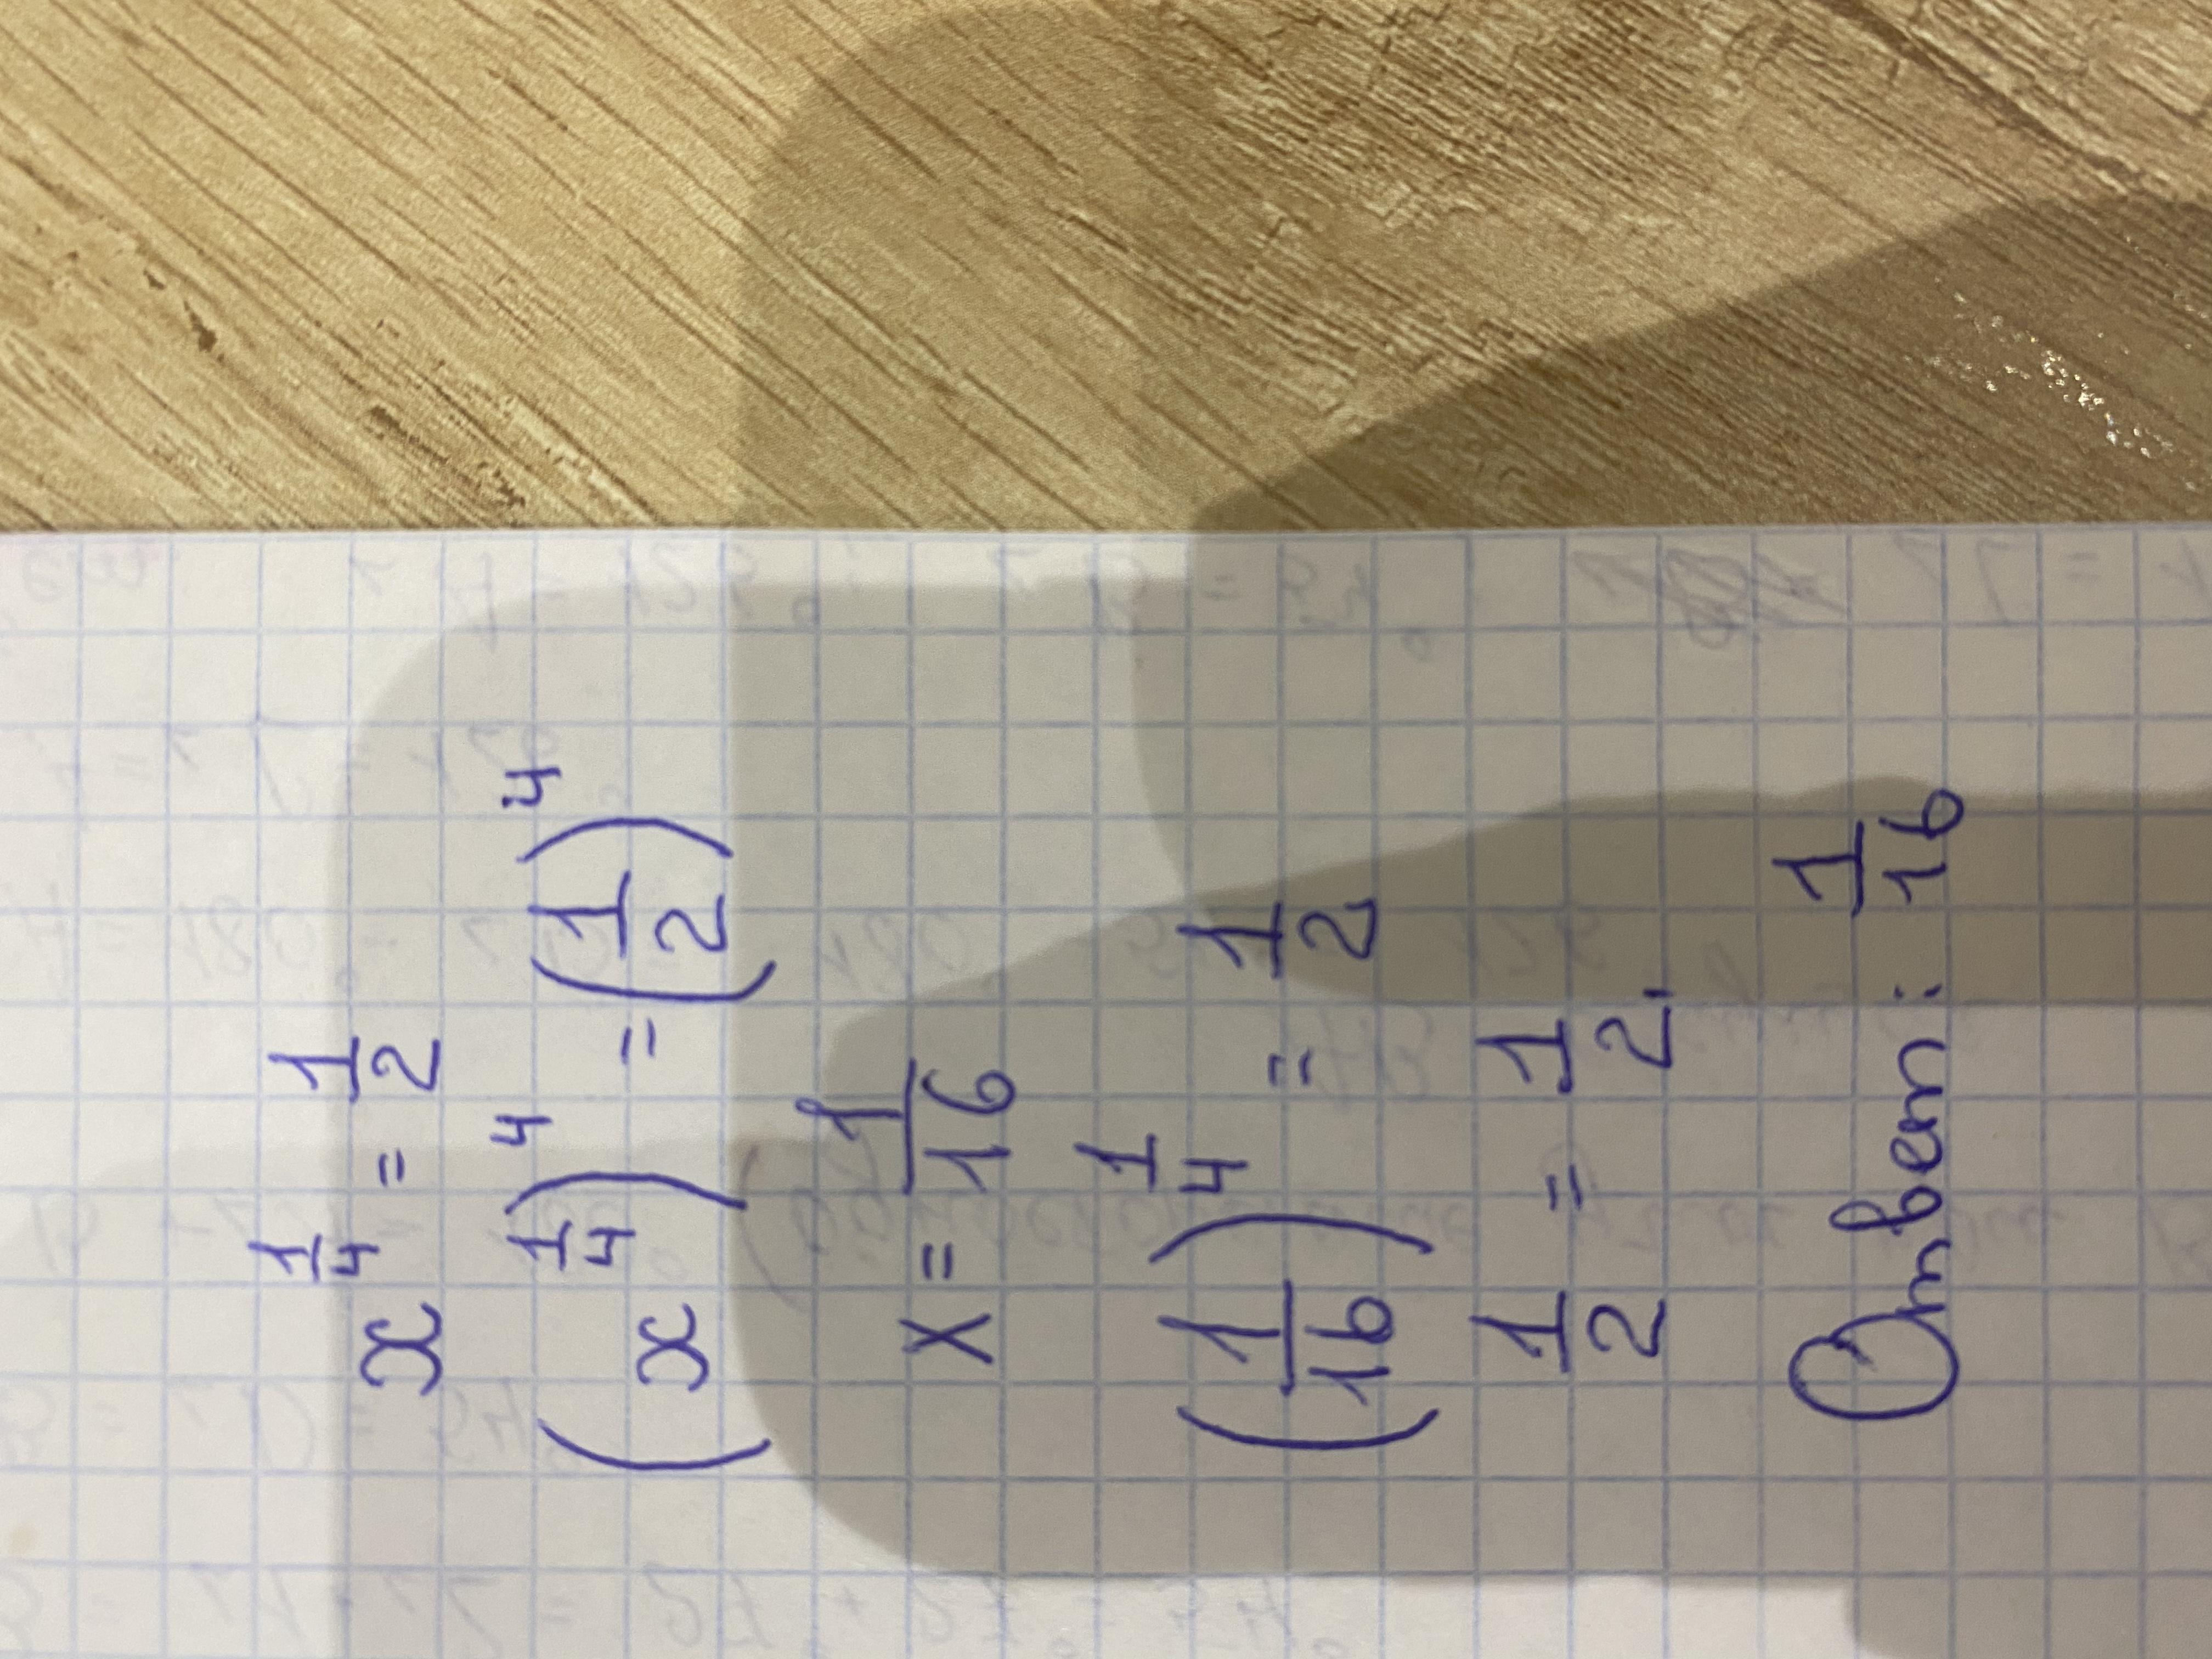 x^(1/4) = 1/2
(x^(1/4))^4 = (1/2)^4
x = 1/16
(1/16)^(1/4) = 1/2
1/2 = 1/2,
Ответ: 1/16